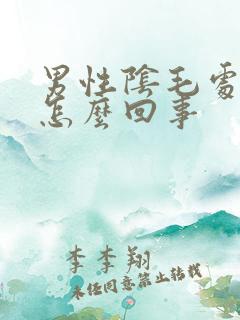 男性陰毛處
怎麼回事
李李翔
未經同意禁止轉載